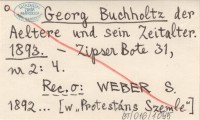 a.
Georg Buchholtz der
Aeltere und sein Zeitalter.
1893. – Zipser Bote 31,
nr 2: 4.
Rec. o: WEBER S.
1892... [w „Protestáns Szemle"]